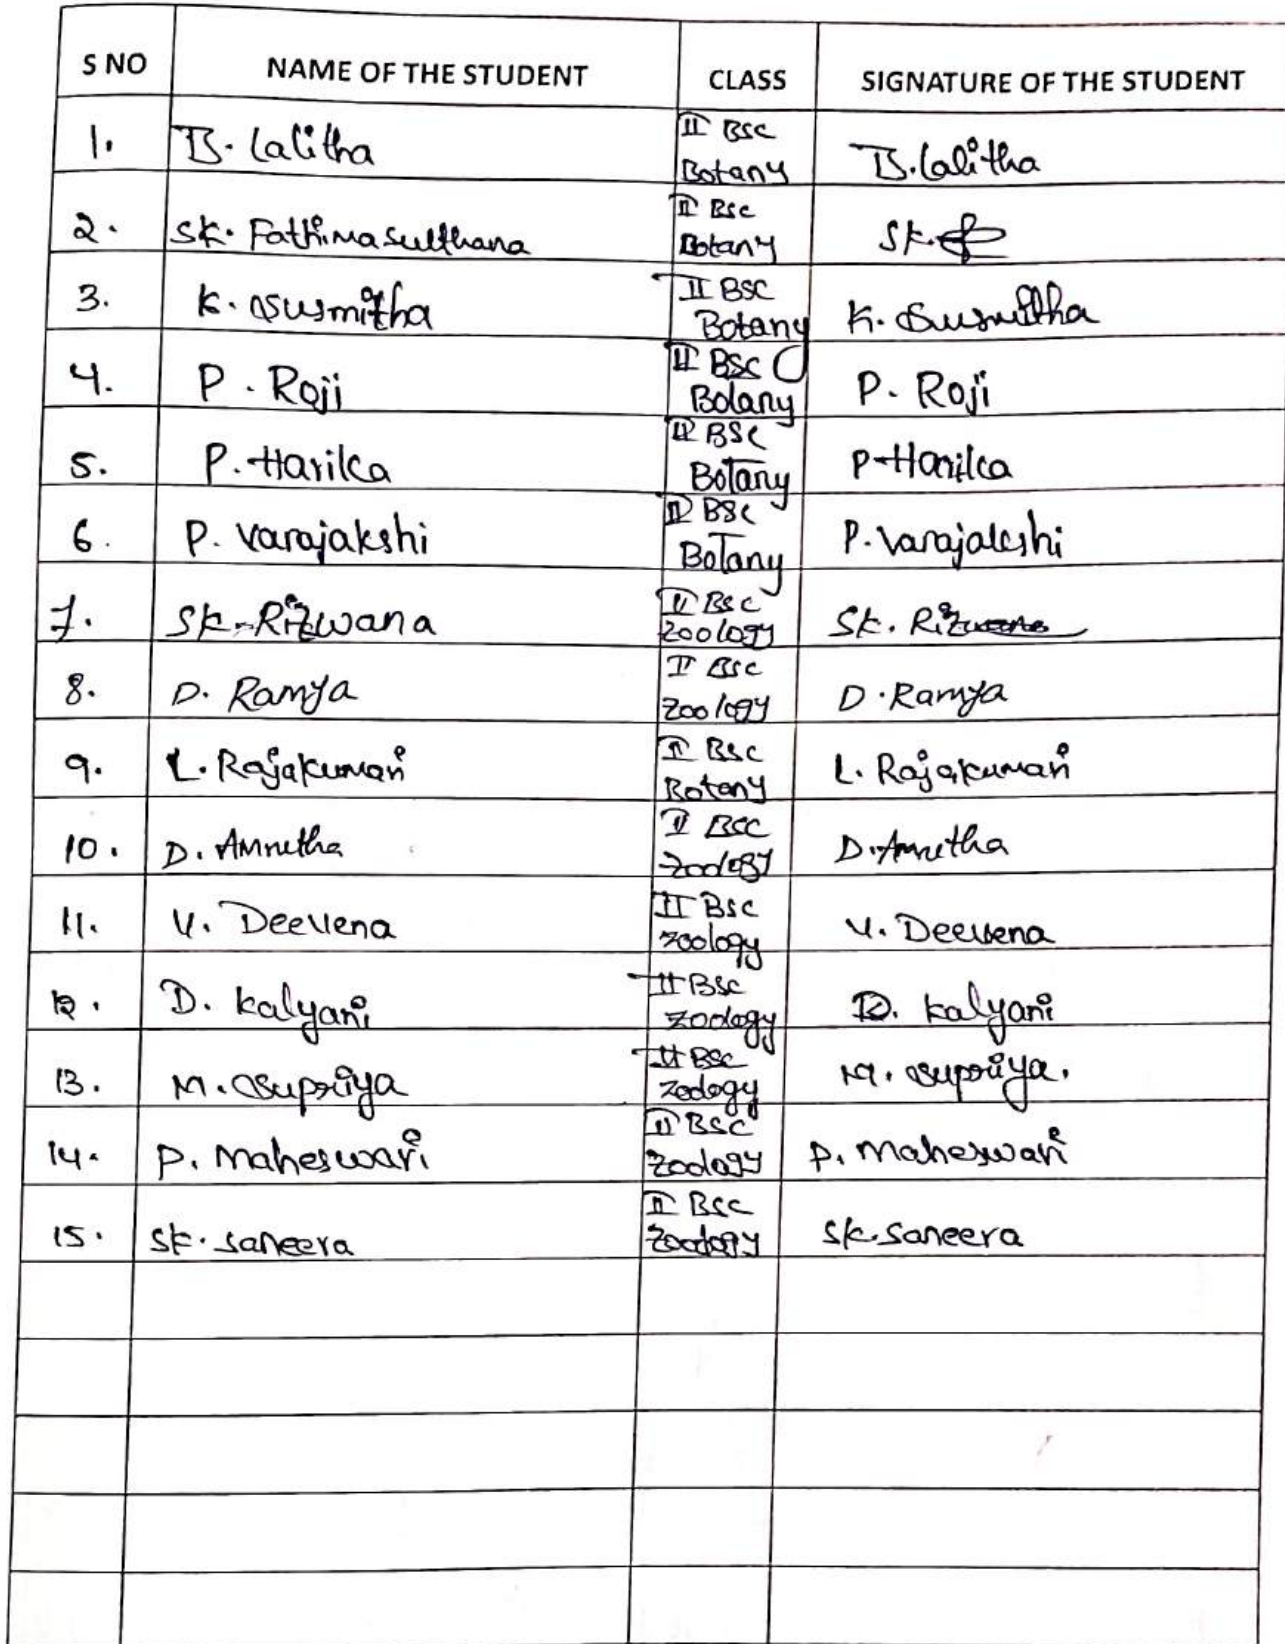 S NO NAME OF THE STUDENT CLASS SIGNATURE OF THE STUDENT
1. B. Lalitha II BSc Botany B. Lalitha
2. SK. Fathima Sulthana II Bsc Botany SK.
3. K. Susmitha II BSC Botany K. Susmitha
4. P. Roji II BSc Botany P. Roji
5. P. Harika II BSc Botany P. Harika
6. P. Varajakshi II BSc Botany P. Varajakshi
7. SK. Rizwana II BSc Zoology SK. Rizwana
8. D. Ramya II BSc Zoology D. Ramya
9. L. Rajakumari II BSc Botany L. Rajakumari
10. D. Amrutha II BSC Zoology D. Amrutha
11. V. Deevena II BSc Zoology V. Deevena
12. D. Kalyani II BSc Zoology D. Kalyani
13. M. Supriya II BSc Zoology M. Supriya.
14. P. Maheswari II BSC Zoology P. Maheswari
15. SK. Saneera II BSC Zoology SK. Saneera